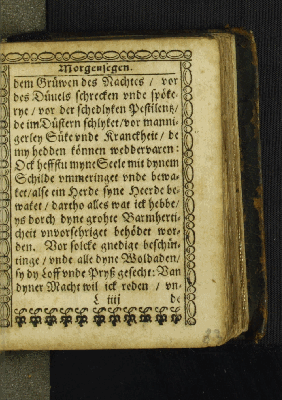 Morgensegen.
dem Grüwen des Nachtes / vor
des Düuels schrecken vnde spöke-
rye / vor der schedlyken Pestilentz/
de im Düstern schlyket/ vor manni-
gerley Süke vnde Kranckheit / de
my hedden können weddervaren:
Ock heffstu myne Seele mit dynem
Schilde vmmeringet vnde bewa-
ket/ alse ein Herde syne Heerde be-
waket / dartho alles wat ick hebbe/
ys dorch dyne grohte Barmherti-
cheit vnvorsehriget behödet wor-
den. Vor solcke gnedige beschüt-
tinge / vnde alle dyne Woldaden/
sy dy Loff vnde Pryß gesecht: Van
dyner Macht wil ick reden / vn-
L iiij de